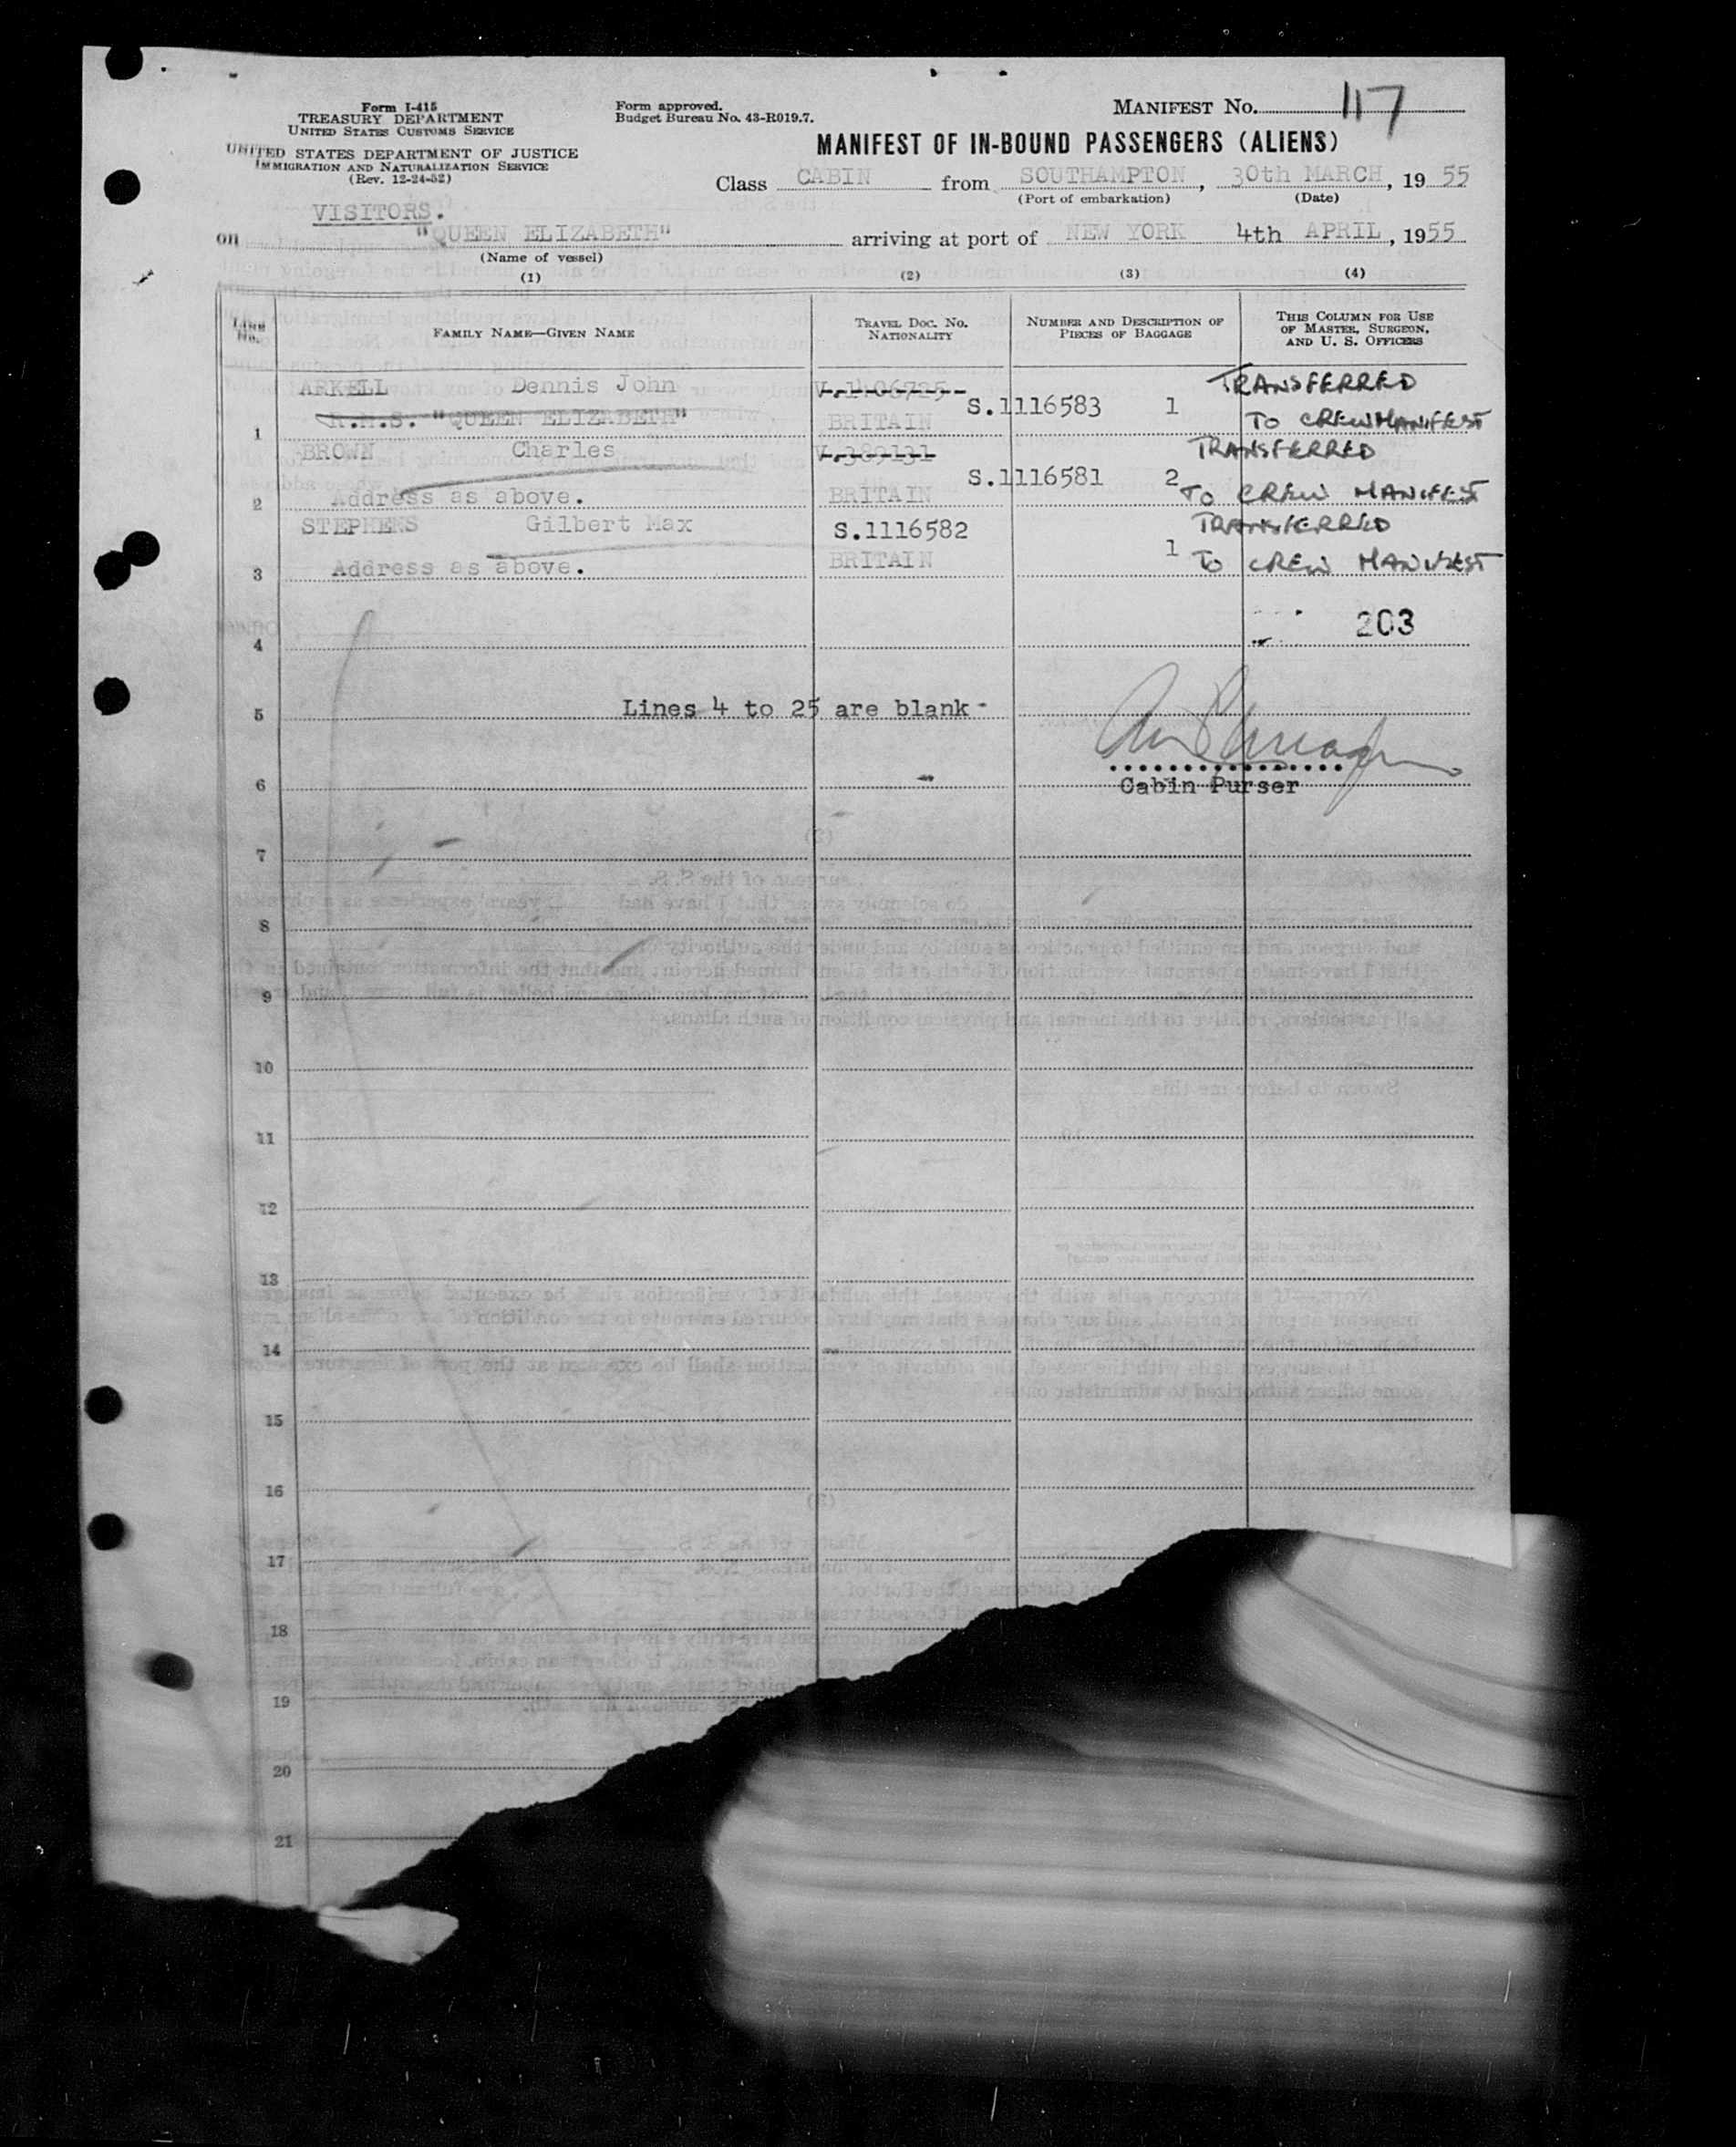 Form I-415
TREASURY DEPARTMENT
UNITED STATES CUSTOMS SERVICE
UNITED STATES DEPARTMENT OF JUSTICE
IMMIGRATION AND NATURALIZATION SERVICE
(Rev. 12-24-52)
Form approved.
Budget Bureau No. 43-R019.7.
MANIFEST No. 117
MANIFEST OF IN-BOUND PASSENGERS (ALIENS)
Class CABIN from SOUTHAMPTON, 30th MARCH, 1955
(Port of embarkation) (Date)
VISITORS.
on "QUEEN ELIZABETH" arriving at port of NEW YORK 4th APRIL, 1955
(Name of vessel)
(1) (2) (3) (4)
Line No. FAMILY NAME—GIVEN NAME TRAVEL DOC. NO. NATIONALITY NUMBER AND DESCRIPTION OF PIECES OF BAGGAGE THIS COLUMN FOR USE OF MASTER, SURGEON, AND U. S. OFFICERS
ARKELL Dennis John V.1406725 TRANSFERRED
S.1116583 1
1 R.M.S. "QUEEN ELIZABETH" BRITAIN TO CREW MANIFEST
BROWN Charles V.389131 TRANSFERRED
S.1116581 2
2 Address as above. BRITAIN TO CREW MANIFEST
STEPHENS Gilbert Max S.1116582 TRANSFERRED
3 Address as above. BRITAIN 1 TO CREW MANIFEST
203
4
5 Lines 4 to 25 are blank-
6 Cabin Purser
7
8
9
10
11
12
13
14
15
16
17
18
19
20
21